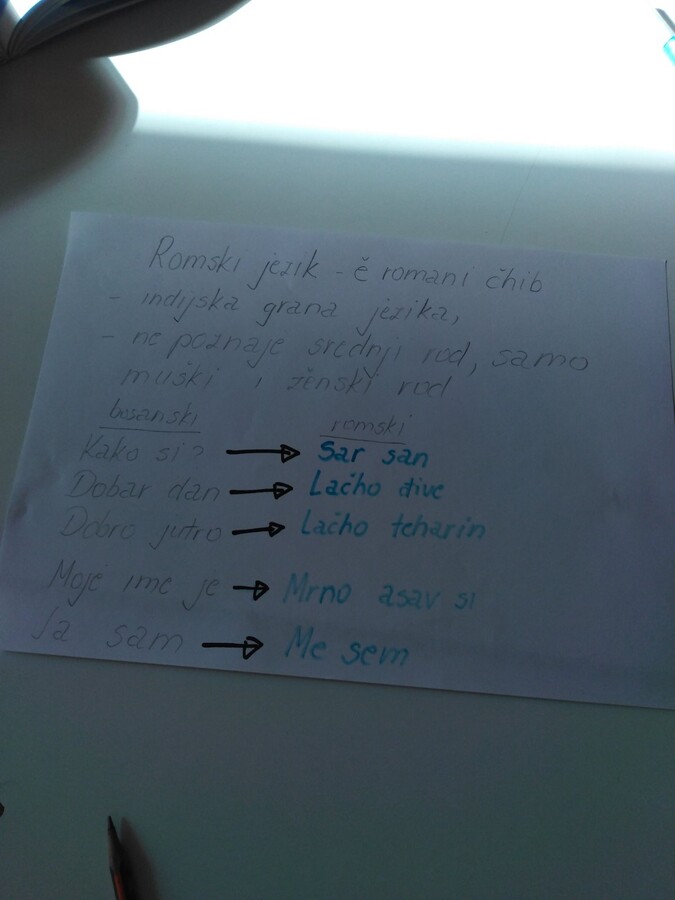 Romski jezik - ě romani čhib
- indijska grana jezika,
- ne poznaje srednji rod, samo
muški i ženski rod
bosanski romski
Kako si? → Sar san
Dobar dan → Lačho dive
Dobro jutro → Lačho teharin
Moje ime je → Mrno asav si
Ja sam → Me sem